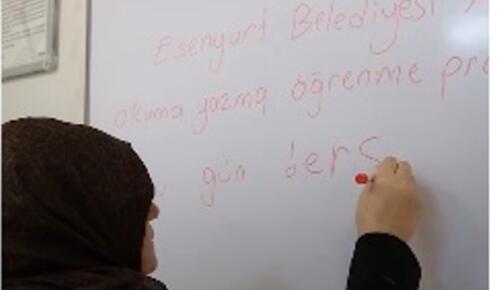 Esenyurt Belediyesi
okuma yazma öğrenme pro
gün ders